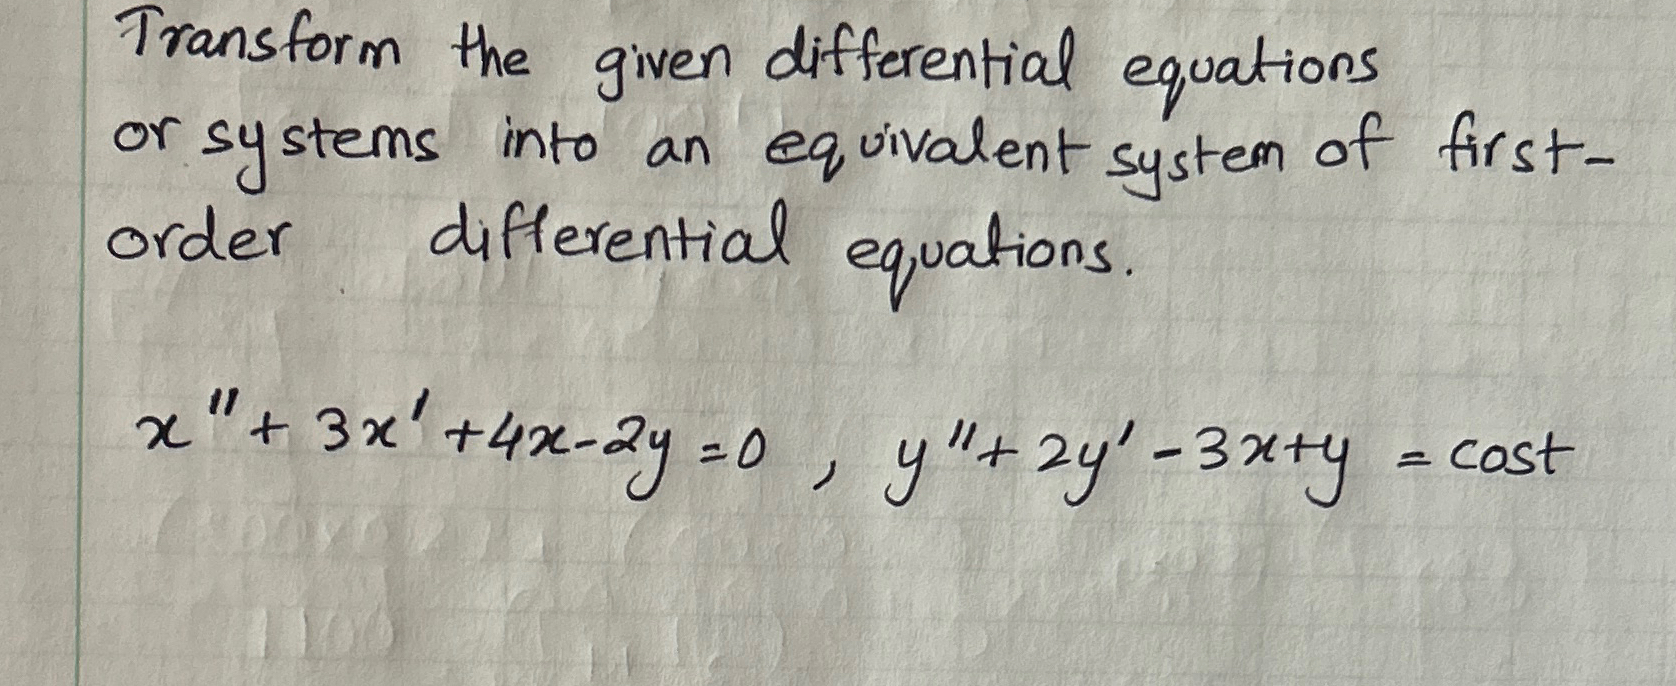 Transform the given differential equations
or systems into an equivalent system of first-
order differential equations.
x'' + 3x' + 4x - 2y = 0 , y'' + 2y' - 3x + y = cost